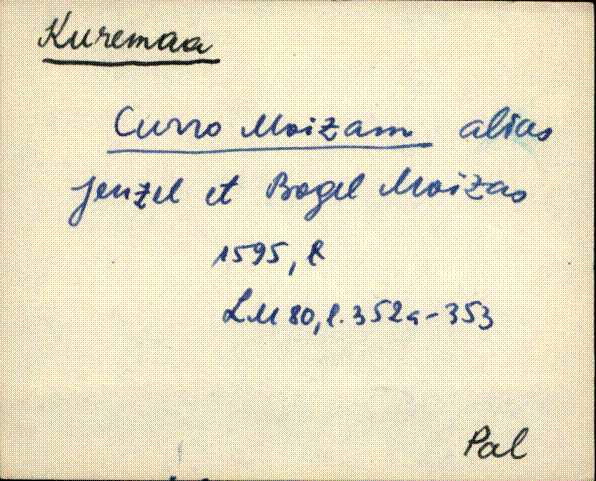 Kuremaa
Curro Moizam alias
Jenzel et Bogel Moizas
1595, l
LM 80, l. 352a-353
Pal